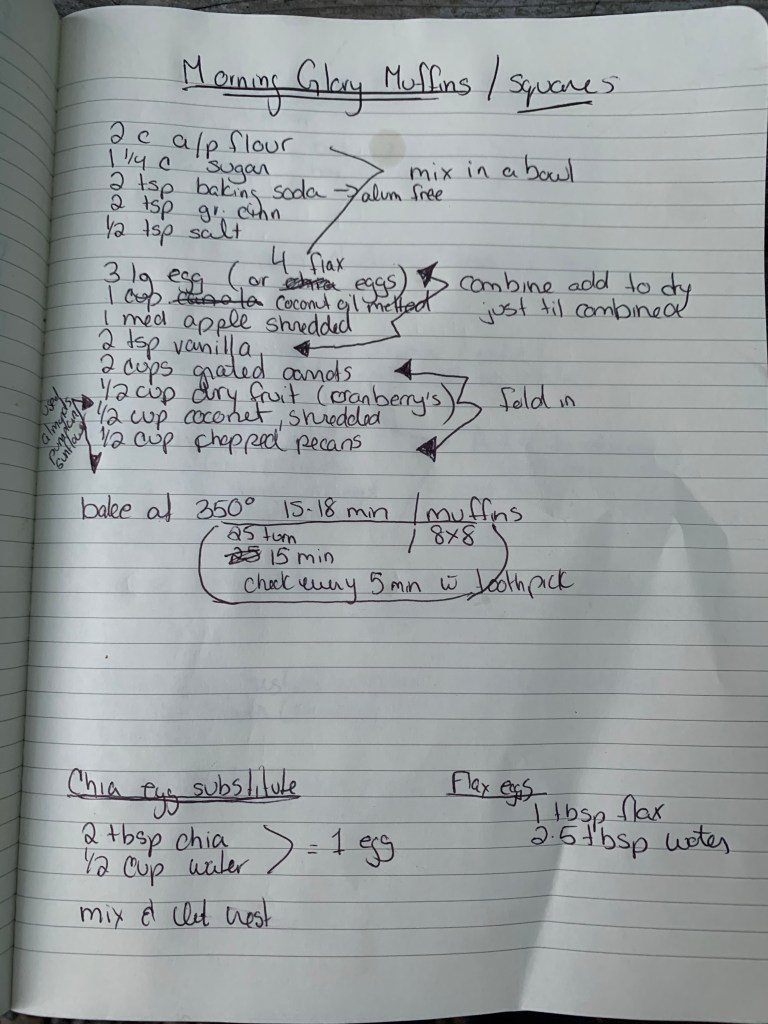 Morning Glory Muffins / squares
2 c a/p flour
1 1/4 c sugar
2 tsp baking soda → alum free
2 tsp gr. cinn
1/2 tsp salt
mix in a bowl
4 flax
3 lg egg (or eggs)
1 cup coconut oil melted
1 med apple shredded
2 tsp vanilla
combine add to dry
just til combined
2 cups grated carrots
1/2 cup dry fruit (cranberry's)
1/2 cup coconut, shredded
1/2 cup chopped pecans
fold in
used
almonds
pumpkin
sunflower
bake at 350° 15-18 min / muffins
25 turn / 8x8
15 min
check every 5 min w toothpick
Chia egg substitute
2 tbsp chia
1/2 cup water
= 1 egg
mix & let rest
Flax eggs
1 tbsp flax
2.5 tbsp water